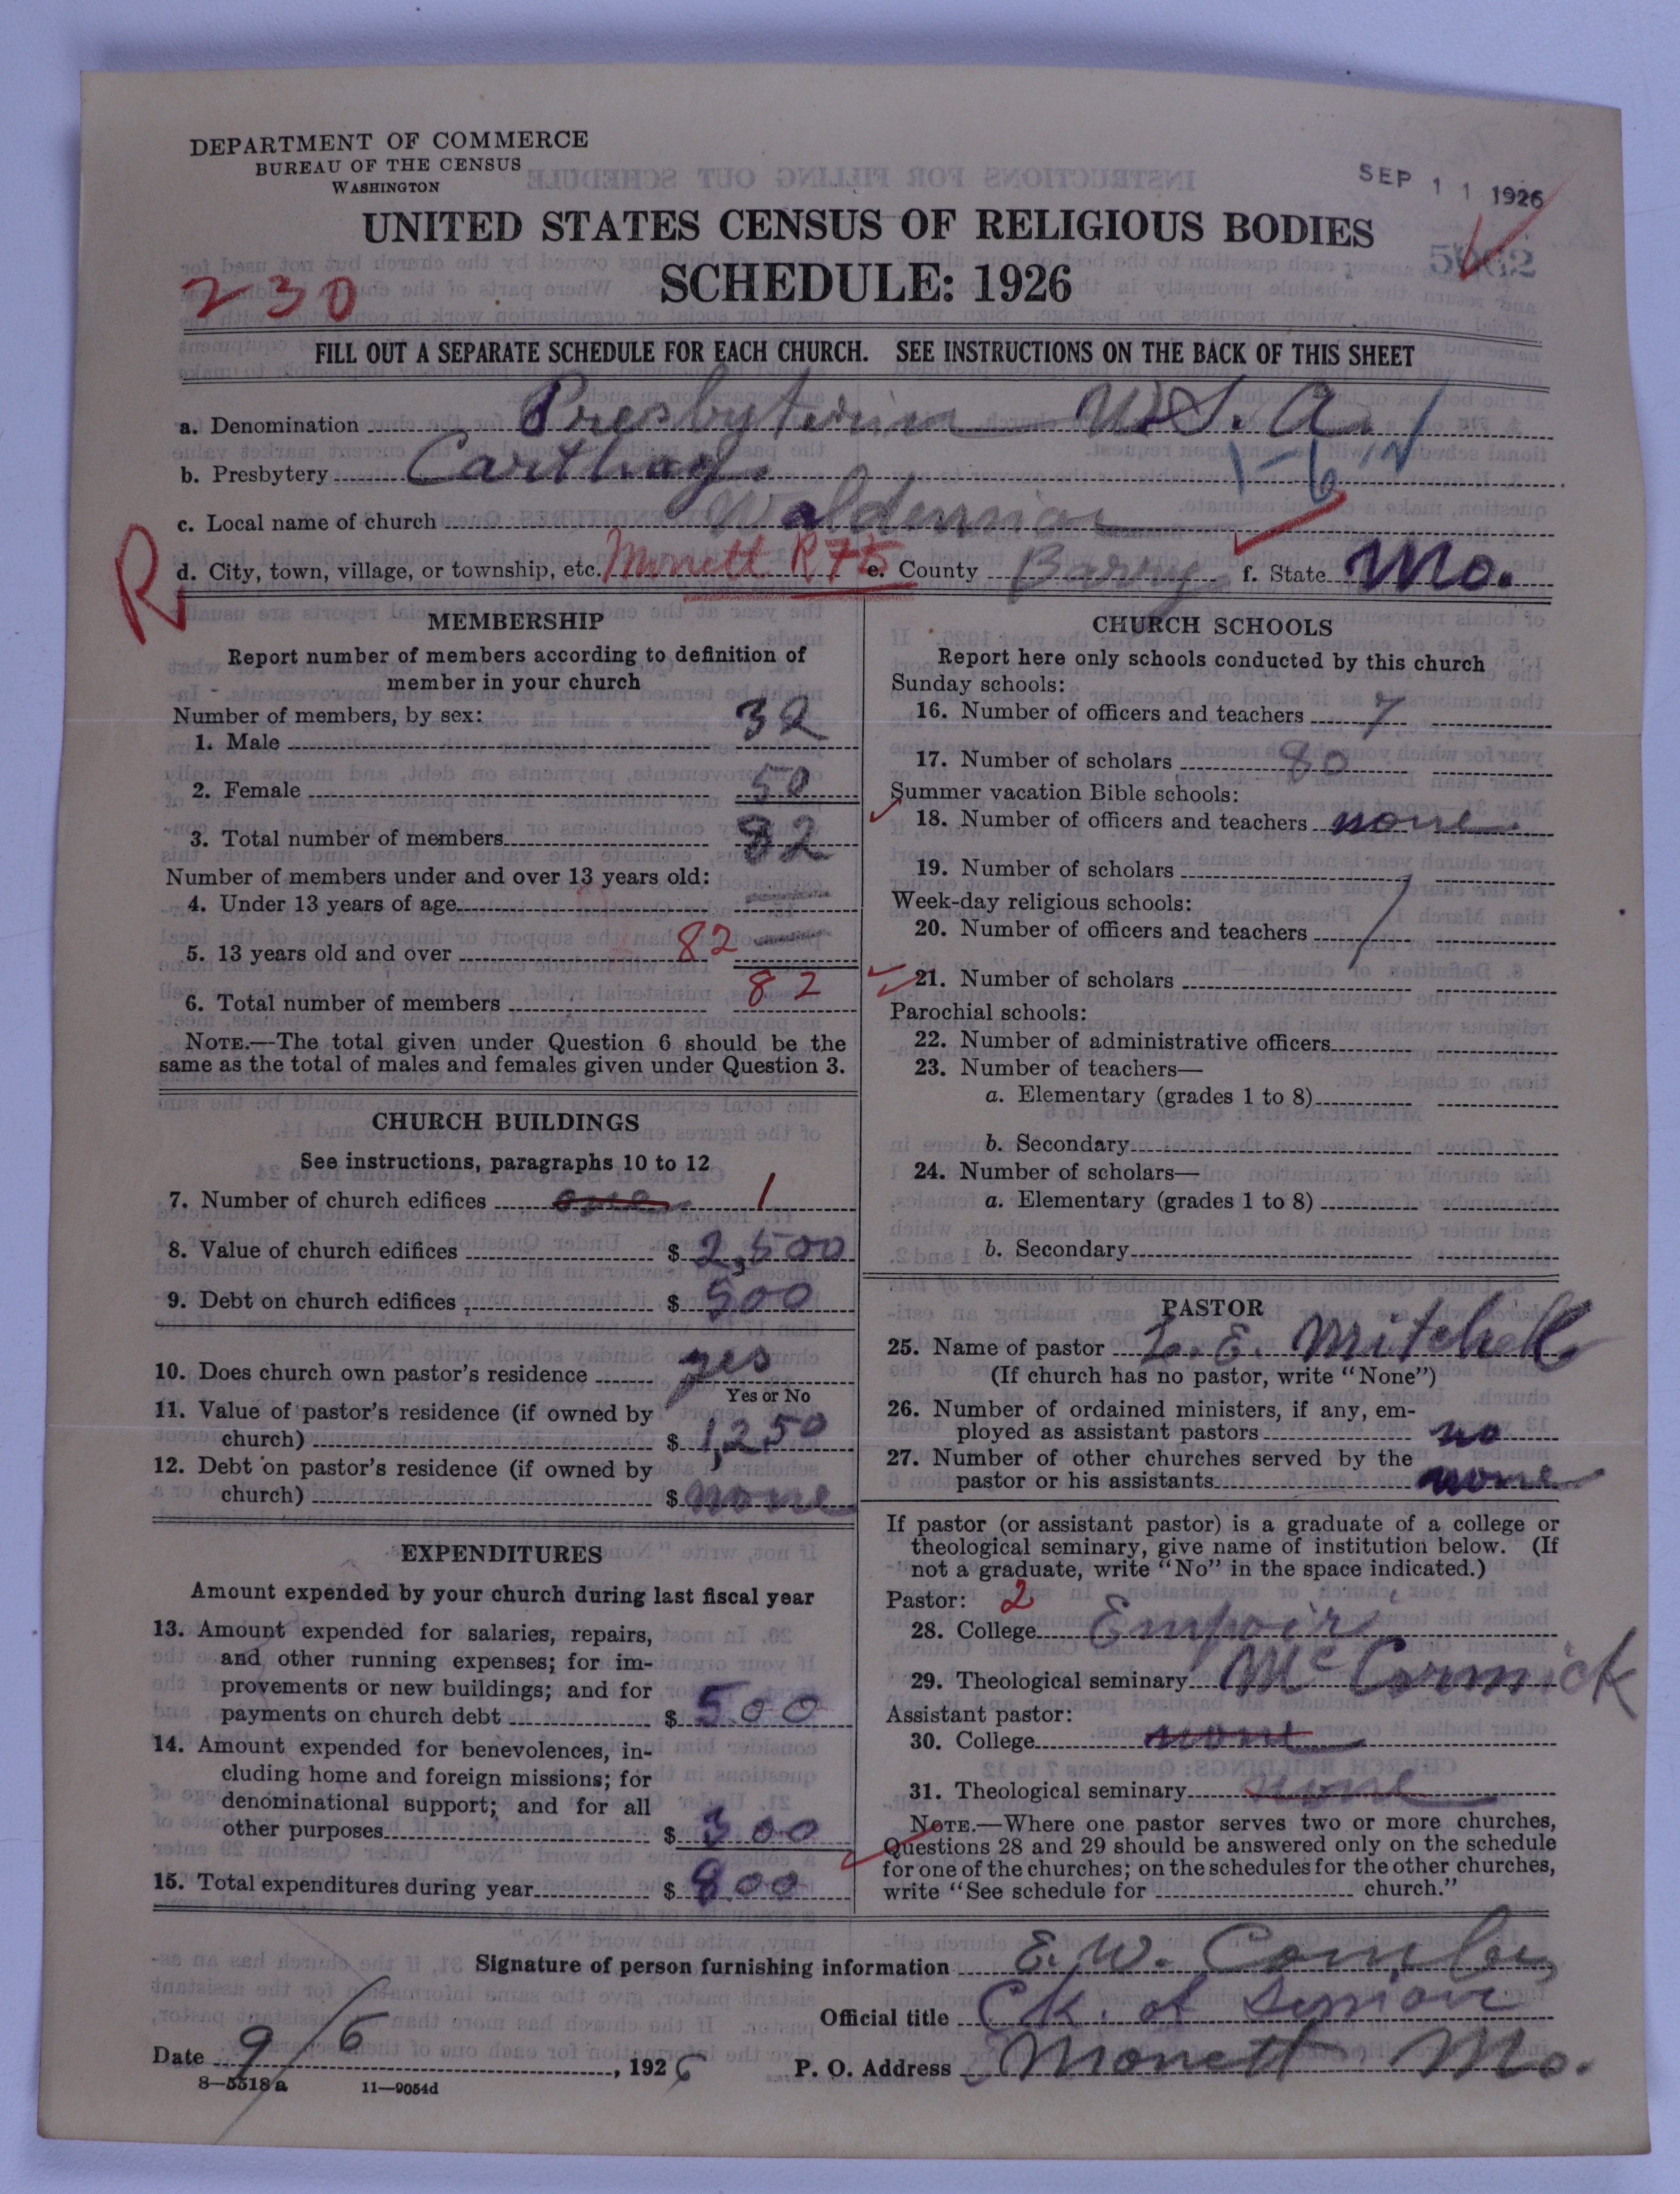 DEPARTMENT OF COMMERCE
BUREAU OF THE CENSUS
WASHINGTON
SEP 11 1926
UNITED STATES CENSUS OF RELIGIOUS BODIES
SCHEDULE: 1926
230
FILL OUT A SEPARATE SCHEDULE FOR EACH CHURCH. SEE INSTRUCTIONS ON THE BACK OF THIS SHEET
a. Denomination Presbyterian U.S.A.
b. Presbytery Carthage
c. Local name of church
R
d. City, town, village, or township, etc. Monett R 75 e. County Barry f. State Mo.
MEMBERSHIP
Report number of members according to definition of
member in your church
Number of members, by sex:
1. Male 32
2. Female 50
3. Total number of members 82
Number of members under and over 13 years old:
4. Under 13 years of age
5. 13 years old and over 82
6. Total number of members 82
NOTE.—The total given under Question 6 should be the
same as the total of males and females given under Question 3.
CHURCH BUILDINGS
See instructions, paragraphs 10 to 12
7. Number of church edifices one 1
8. Value of church edifices $ 2,500
9. Debt on church edifices $ 500
10. Does church own pastor's residence yes
Yes or No
11. Value of pastor's residence (if owned by
church) $ 1,250
12. Debt on pastor's residence (if owned by
church) $ none
EXPENDITURES
Amount expended by your church during last fiscal year
13. Amount expended for salaries, repairs,
and other running expenses; for im-
provements or new buildings; and for
payments on church debt $ 500
14. Amount expended for benevolences, in-
cluding home and foreign missions; for
denominational support; and for all
other purposes $ 300
15. Total expenditures during year $ 800
CHURCH SCHOOLS
Report here only schools conducted by this church
Sunday schools:
16. Number of officers and teachers 7
17. Number of scholars 80
Summer vacation Bible schools:
18. Number of officers and teachers none
19. Number of scholars
Week-day religious schools:
20. Number of officers and teachers
21. Number of scholars
Parochial schools:
22. Number of administrative officers
23. Number of teachers—
a. Elementary (grades 1 to 8)
b. Secondary
24. Number of scholars—
a. Elementary (grades 1 to 8)
b. Secondary
PASTOR
25. Name of pastor L. E. Mitchell
(If church has no pastor, write "None")
26. Number of ordained ministers, if any, em-
ployed as assistant pastors no
27. Number of other churches served by the
pastor or his assistants none
If pastor (or assistant pastor) is a graduate of a college or
theological seminary, give name of institution below. (If
not a graduate, write "No" in the space indicated.)
Pastor: 2
28. College Empoir
29. Theological seminary McCormick
Assistant pastor:
30. College none
31. Theological seminary none
NOTE.—Where one pastor serves two or more churches,
Questions 28 and 29 should be answered only on the schedule
for one of the churches; on the schedules for the other churches,
write "See schedule for church."
Signature of person furnishing information E. W. Combs
Official title Clk. of Session
Date 9/6, 1926 P. O. Address Monett Mo.
8—5518a 11—9054d